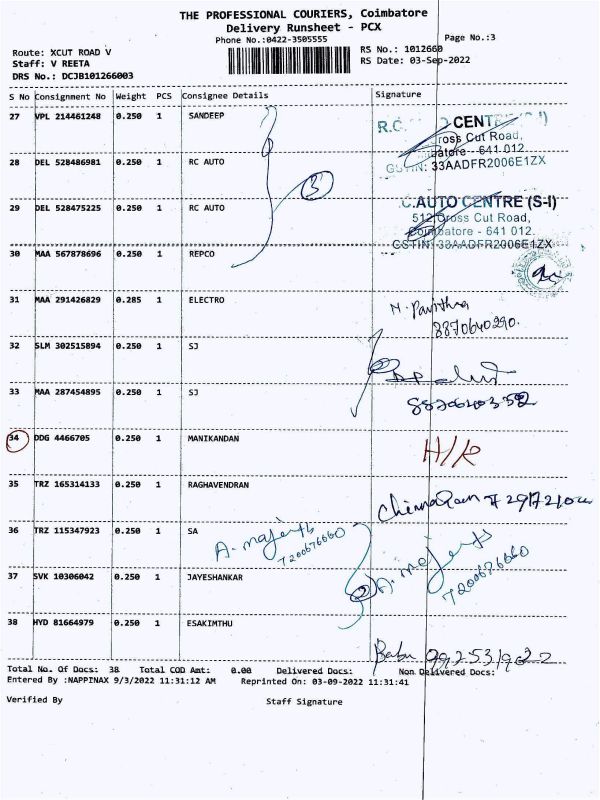 THE PROFESSIONAL COURIERS, Coimbatore
Delivery Runsheet - PCX
Phone No.:0422-3505555
Page No.:3
Route: XCUT ROAD V
RS No.: 1012660
Staff: V REETA
RS Date: 03-Sep-2022
DRS No.: DCJB101266003
S No Consignment No Weight PCS Consignee Details Signature
27 VPL 214461248 0.250 1 SANDEEP
CENTRE (S-I)
Cross Cut Road,
641 012.
GSTIN: 33AADFR2006E1ZX
28 DEL 528486981 0.250 1 RC AUTO
3
29 DEL 528475225 0.250 1 RC AUTO
C.AUTO CENTRE (S-I)
512 Cross Cut Road,
Coimbatore - 641 012.
GSTIN: 33AADFR2006E1ZX
30 MAA 567878696 0.250 1 REPCO
31 MAA 291426829 0.285 1 ELECTRO
8870640290.
32 SLM 302515894 0.250 1 SJ
2
33 MAA 287454895 0.250 1 SJ
34 DDG 4466705 0.250 1 MANIKANDAN
35 TRZ 165314133 0.250 1 RAGHAVENDRAN
36 TRZ 115347923 0.250 1 SA
7200676660
7200676660
37 SVK 10306042 0.250 1 JAYESHANKAR
2
38 HYD 81664979 0.250 1 ESAKIMTHU
Babu
Total No. Of Docs: 38 Total COD Amt: 0.00 Delivered Docs: Non Delivered Docs:
Entered By :NAPPINAX 9/3/2022 11:31:12 AM Reprinted On: 03-09-2022 11:31:41
Verified By
Staff Signature